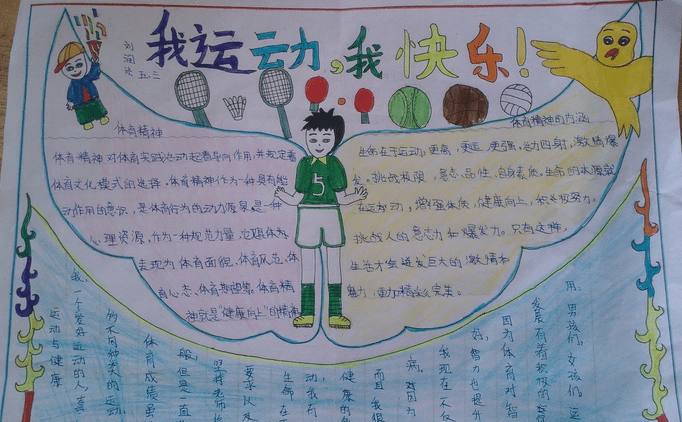 我运动,我快乐!
刘润冰
五.三
体育精神
体育精神对体育实践活动起着导向作用,并规定着
体育文化模式的选择。体育精神作为一种具有能
动作用的意识,是体育行为的动力源泉,是一种
心理资源。作为一种规范力量,它既体
表现为体育面貌、体育风范、体
育心态、体育期望等,体育精
神就是"健康向上"的精神
5
体育精神的内涵
生命在于运动,更高,更远,更强,活力四射,激情爆
发。挑战极限,意志品性,自身素质。生命的本源就
在运动,增强体质,健康向上,积极努力。
挑战人的意志力和爆发力。只有这样,
生活才能迸发巨大的激情和
魅力,更加精彩完美。
用。男孩们,女孩们,运
发展有着积极的
因为体育对智
好,智力也提升
我现在不仅
病。对因为
而且我很
健康的
动,我有
生命在
要求以及
坚持老师
般,但是一直
体育成绩虽
的不同种类的运动
我,一个爱好运动的人,喜
运动与健康